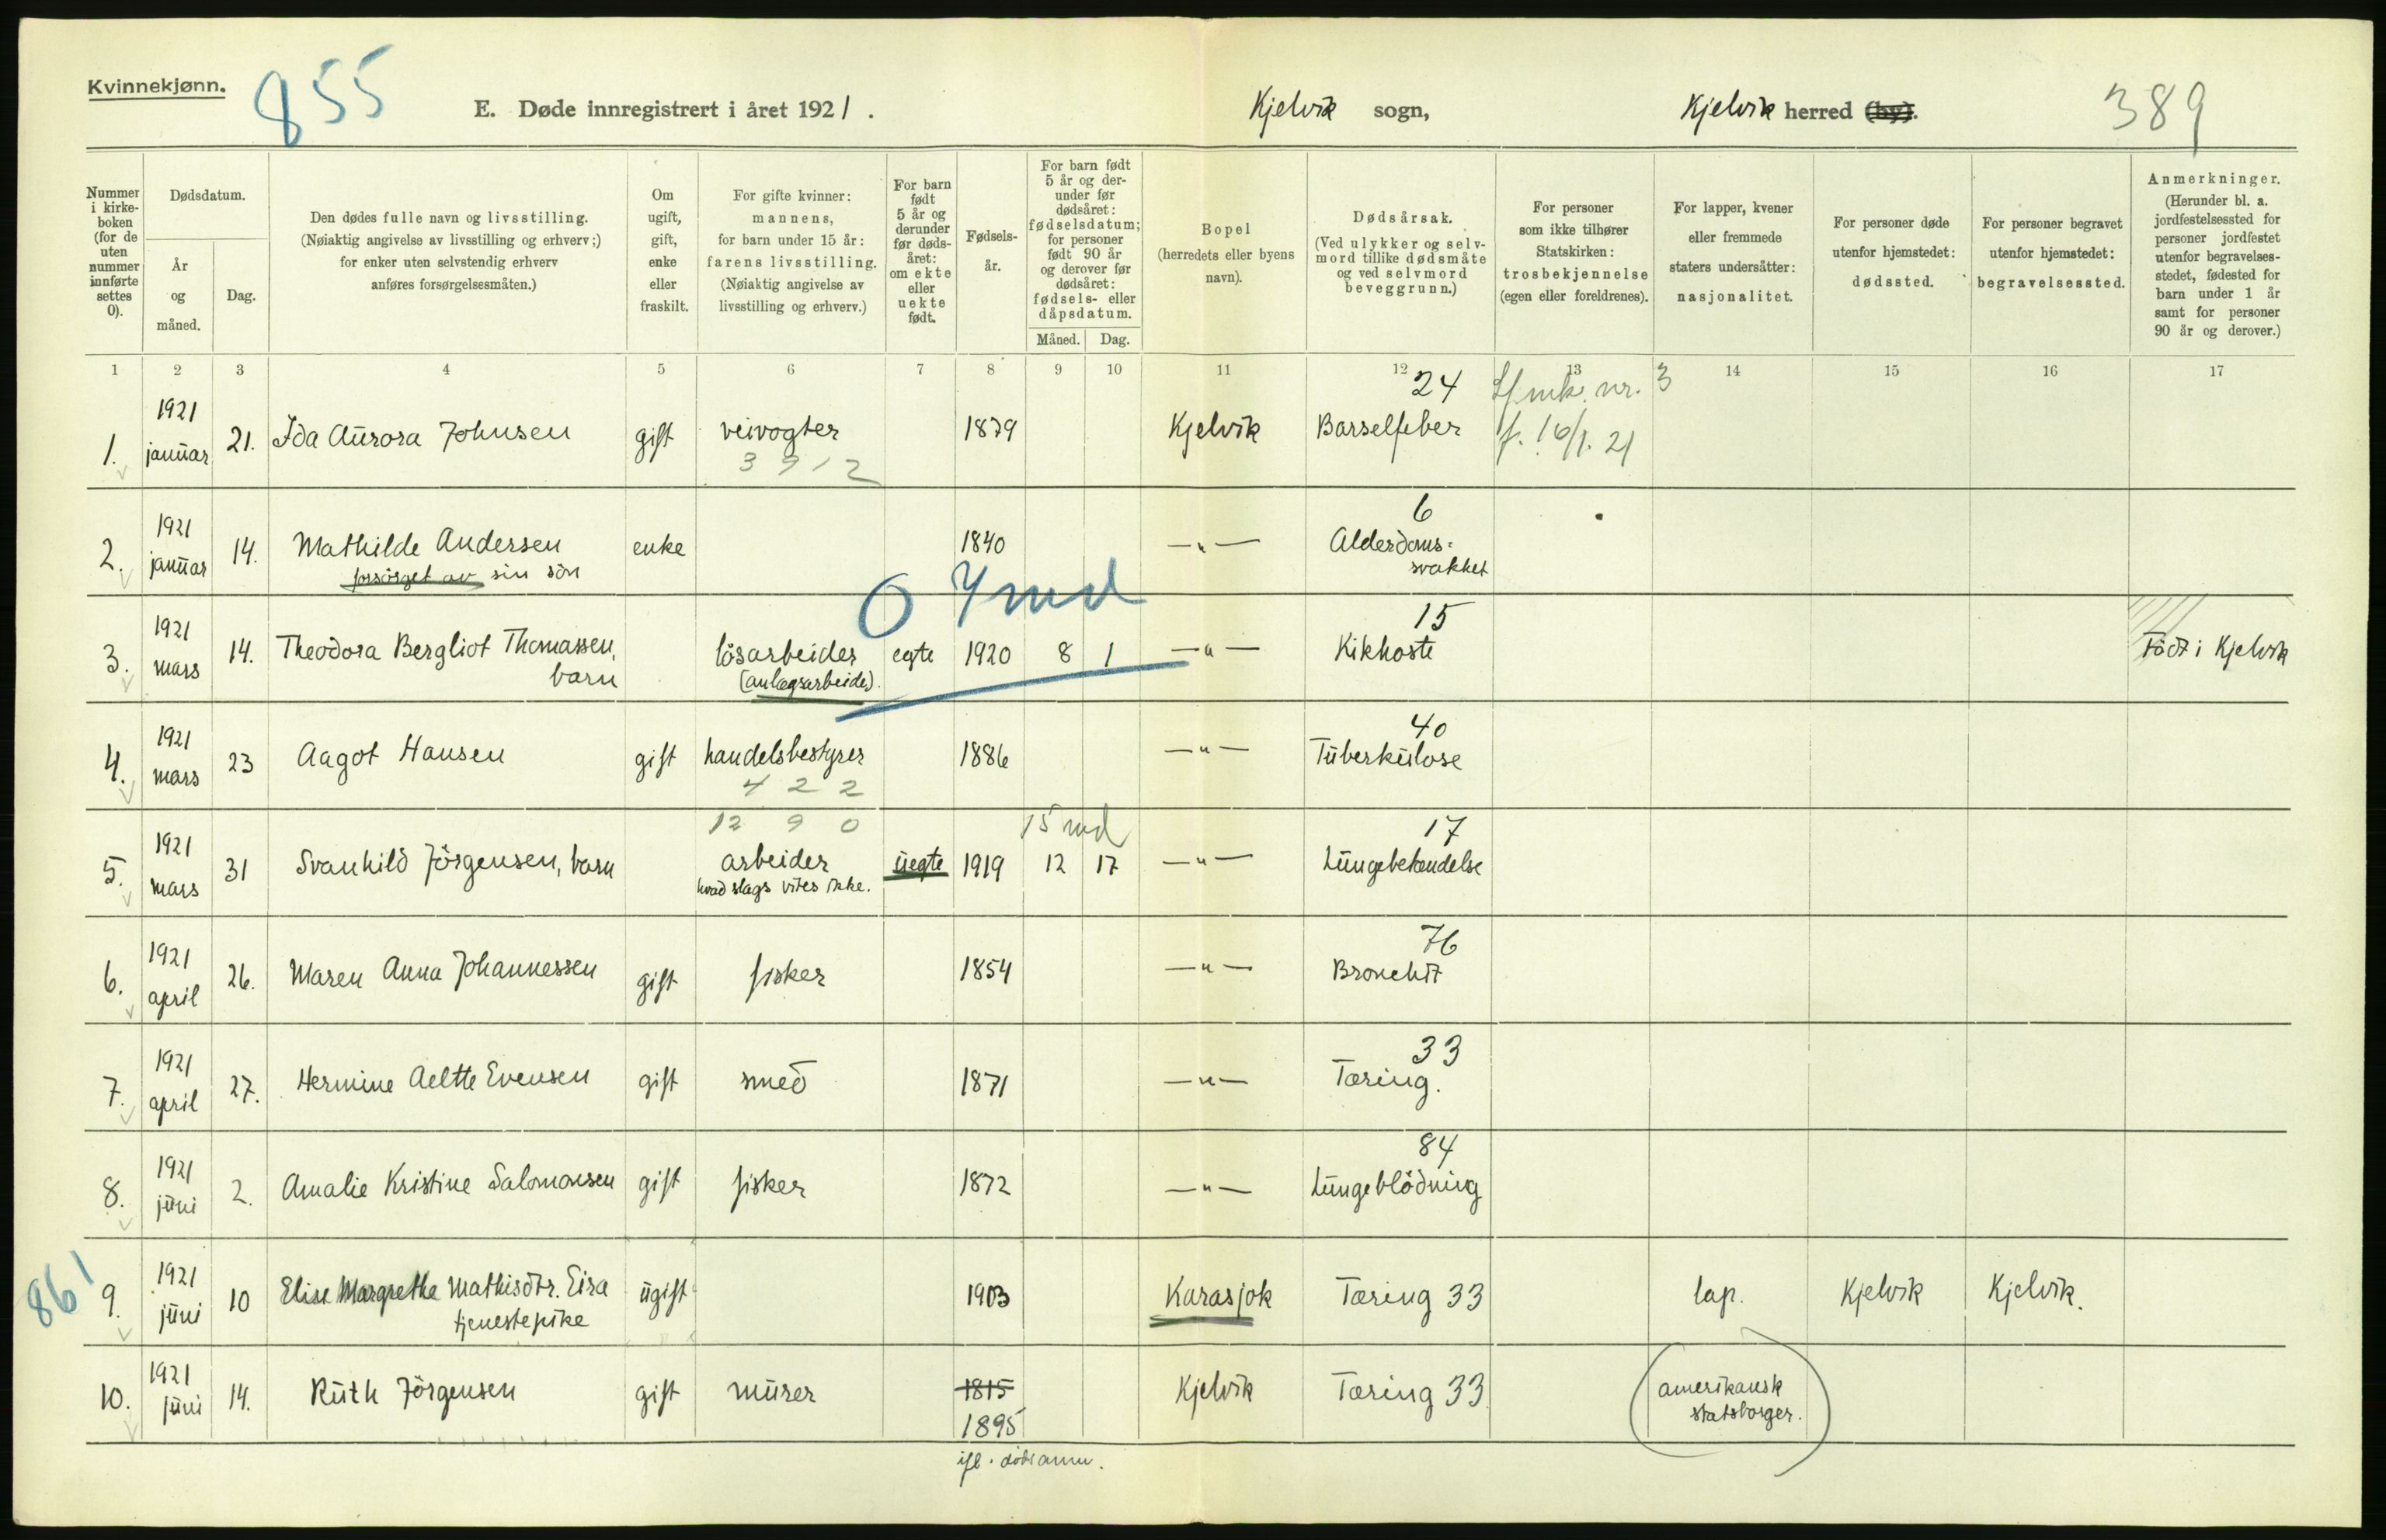 Kvinnekjønn.
855
E. Døde innregistrert i året 1921.
Kjelvik sogn,
Kjelvik herred (by).
389
Nummer i kirke-boken (for de uten nummer innførte settes 0).
Dødsdatum.
År og måned.
Dag.
Den dødes fulle navn og livsstilling.
(Nøiaktig angivelse av livsstilling og erhverv;)
for enker uten selvstendig erhverv
anføres forsørgelsesmåten.)
Om ugift, gift, enke eller fraskilt.
For gifte kvinner:
mannens,
for barn under 15 år:
farens livsstilling.
(Nøiaktig angivelse av
livsstilling og erhverv.)
For barn født 5 år og derunder før døds-året: om ekte eller uekte født.
Fødsels-år.
For barn født 5 år og der-under før dødsåret: fødselsdatum; for personer født 90 år og derover før dødsåret: fødsels- eller dåpsdatum.
Måned.
Dag.
Bopel
(herredets eller byens navn).
Dødsårsak.
(Ved ulykker og selv-mord tillike dødsmåte og ved selvmord beveggrunn.)
For personer
som ikke tilhører
Statskirken:
trosbekjennelse
(egen eller foreldrenes).
For lapper, kvener
eller fremmede
staters undersåtter:
nasjonalitet.
For personer døde
utenfor hjemstedet:
dødssted.
For personer begravet
utenfor hjemstedet:
begravelsessted.
Anmerkninger.
(Herunder bl. a. jordfestelsessted for personer jordfestet utenfor begravelses-stedet, fødested for barn under 1 år samt for personer 90 år og derover.)
1 2 3 4 5 6 7 8 9 10 11 12 13 14 15 16 17
24 nr. 3
1. 1921 januar 21. Ida Aurora Johnsen gift veivogter 1879 Kjelvik Barselfeber f. 16/1. 21
3912
6
2. 1921 januar 14. Mathilde Andersen enke 1840 —"— Alderdoms-
forsörget av sin sön svakhet
0 7 md
15
3. 1921 mars 14. Theodora Bergliot Thomassen, lösarbeider egte 1920 8 1 —"— Kikhoste Födt i Kjelvik
barn (anlægsarbeide).
40
4. 1921 mars 23 Aagot Hansen gift handelsbestyrer 1886 —"— Tuberkulose
422
12 9 0 15 md 17
5. 1921 mars 31 Svanhild Jörgensen, barn arbeider uegte 1919 12 17 —"— Lungebetændelse
hvad slags vites ikke.
76
6. 1921 april 26. Maren Anna Johannessen gift fisker 1854 —"— Bronchit
33
7. 1921 april 27. Hermine Aeltte Evensen gift smed 1871 —"— Tæring.
84
8. 1921 juni 2. Amalie Kristine Salomonsen gift fisker 1872 —"— Lungeblödning
861
9. 1921 juni 10 Elise Margrethe Mathisdtr. Eira ugift 1903 Karasjok Tæring 33 lap. Kjelvik Kjelvik.
tjenestepike
10. 1921 juni 14. Ruth Jörgensen gift murer 1815 Kjelvik Tæring 33 amerikansk
1895 statsborger.
ifl. dödsanm.